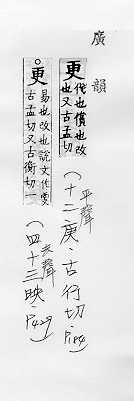 廣韻
更 代也償也改也又古孟切
(平聲十二庚、古行切、P184)
更 易也改也說文作㪅古孟切又古衡切一
(去聲四十三映、P429)